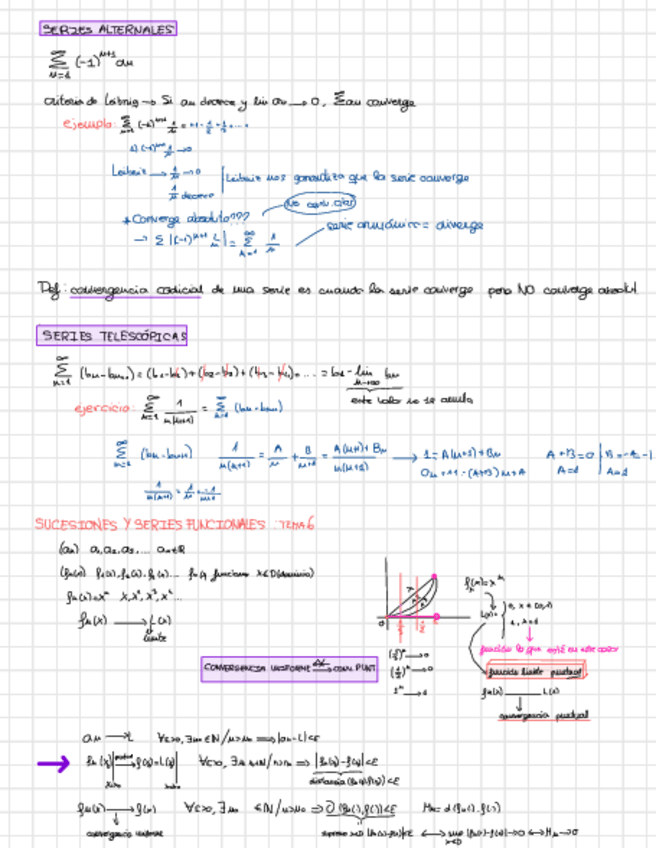 SERIES ALTERNALES
∞ Σ n=1 (-1)ⁿ⁺¹ an
criterio de Leibniz → Si an decrece y lim an → 0, Σan converge
ejemplo: Σ (-1)ⁿ⁺¹ 1/n =
Leibniz → 1/n → 0 | Leibniz nos garantiza que la serie converge
1/n decrece
*Converge absoluto???
→ Σ |(-1)ⁿ⁺¹ 1/n| = ∞ Σ n=1 1/n serie armónica = diverge
Def: convergencia condicional de una serie es cuando la serie converge pero NO converge absolut.
SERIES TELESCÓPICAS
∞ Σ n=1 (bn - bn+1) = (b1 - b2) + (b2 - b3) + (b3 - b4) + .... = b1 - lim n→∞ bn
este valor no se anula
ejercicio: ∞ Σ n=1 1/n(n+1) = Σ (bn - bn+1)
∞ Σ n=1 (bn - bn+1) 1/n(n+1) = A/n + B/n+1 = A(n+1) + Bn / n(n+1) → 1 = A(n+1) + Bn A+B=0 | B=-A=-1
0n + 1 = (A+B)n + A A=1 | A=1
SUCESIONES Y SERIES FUNCIONALES: TEMA 6
(an) a1, a2, a3, ... an ∈ R
(fn(x)) f1(x), f2(x), f3(x) ... fn(x) funciones x ∈ D(dominio)
fn(x) = xⁿ x, x², x³, xⁿ ...
fn(x) → L(x)
límite
fn(x) = xⁿ
0, x ∈ [0,1)
1, x=1
función lo que está en este color
función límite puntual
CONVERGENCIA UNIFORME ⇒ CONV. PUNT
fn(x) → L(x)
convergencia puntual
(1/2)ⁿ → 0
1ⁿ → 1
an → L ∀ε>0, ∃n0 ∈ N / n>n0 ⇒ |an - L| < ε
fn(x) puntual → f(x) = L(x) ∀ε>0, ∃n0 ∈ N / n>n0 ⇒ |fn(x) - f(x)| < ε
distancia (fn(x), f(x)) < ε
fn(x) → f(x) ∀ε>0, ∃n0 ∈ N / n>n0 ⇒ D (fn(x), f(x)) < ε Mn = d(fn(x), f(x))
convergencia uniforme
supremo x∈D |fn(x) - f(x)| < ε ⟷ sup x∈D |fn(x) - f(x)| → 0 ⟷ Mn → 0